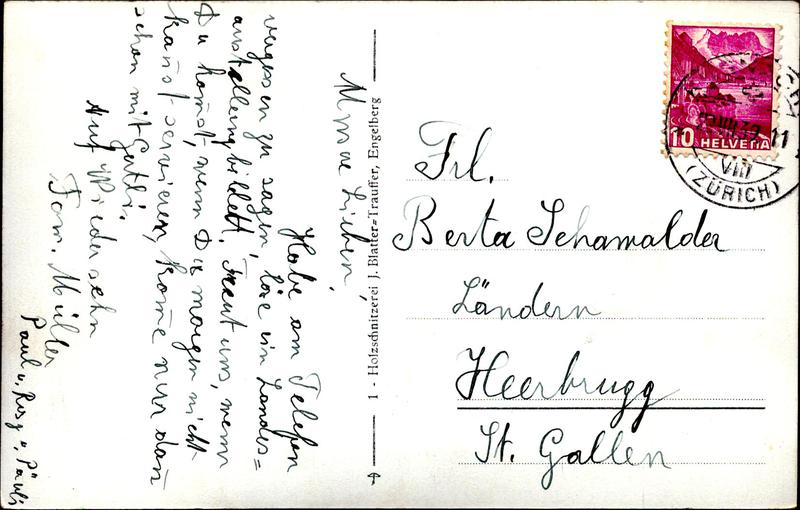 M
Lieben!
Habe am Telefon
vergessen zu sagen, in Landes=
ausstellung bildet. Freut uns, wenn
Du komst, wenn Du morgen nicht
kanst servieren, kome nur dan
schon mit Gutli.
Auf Wiedersehn
Fam. Müller
Paul u, Rosy u, Päuli
1 - Holzschnitzerei J. Blatter-Trauffer, Engelberg
Frl.
Berta Schawalder
Ländern
Heerbrugg
St. Gallen
10 HELVETIA
VIII
(ZÜRICH)